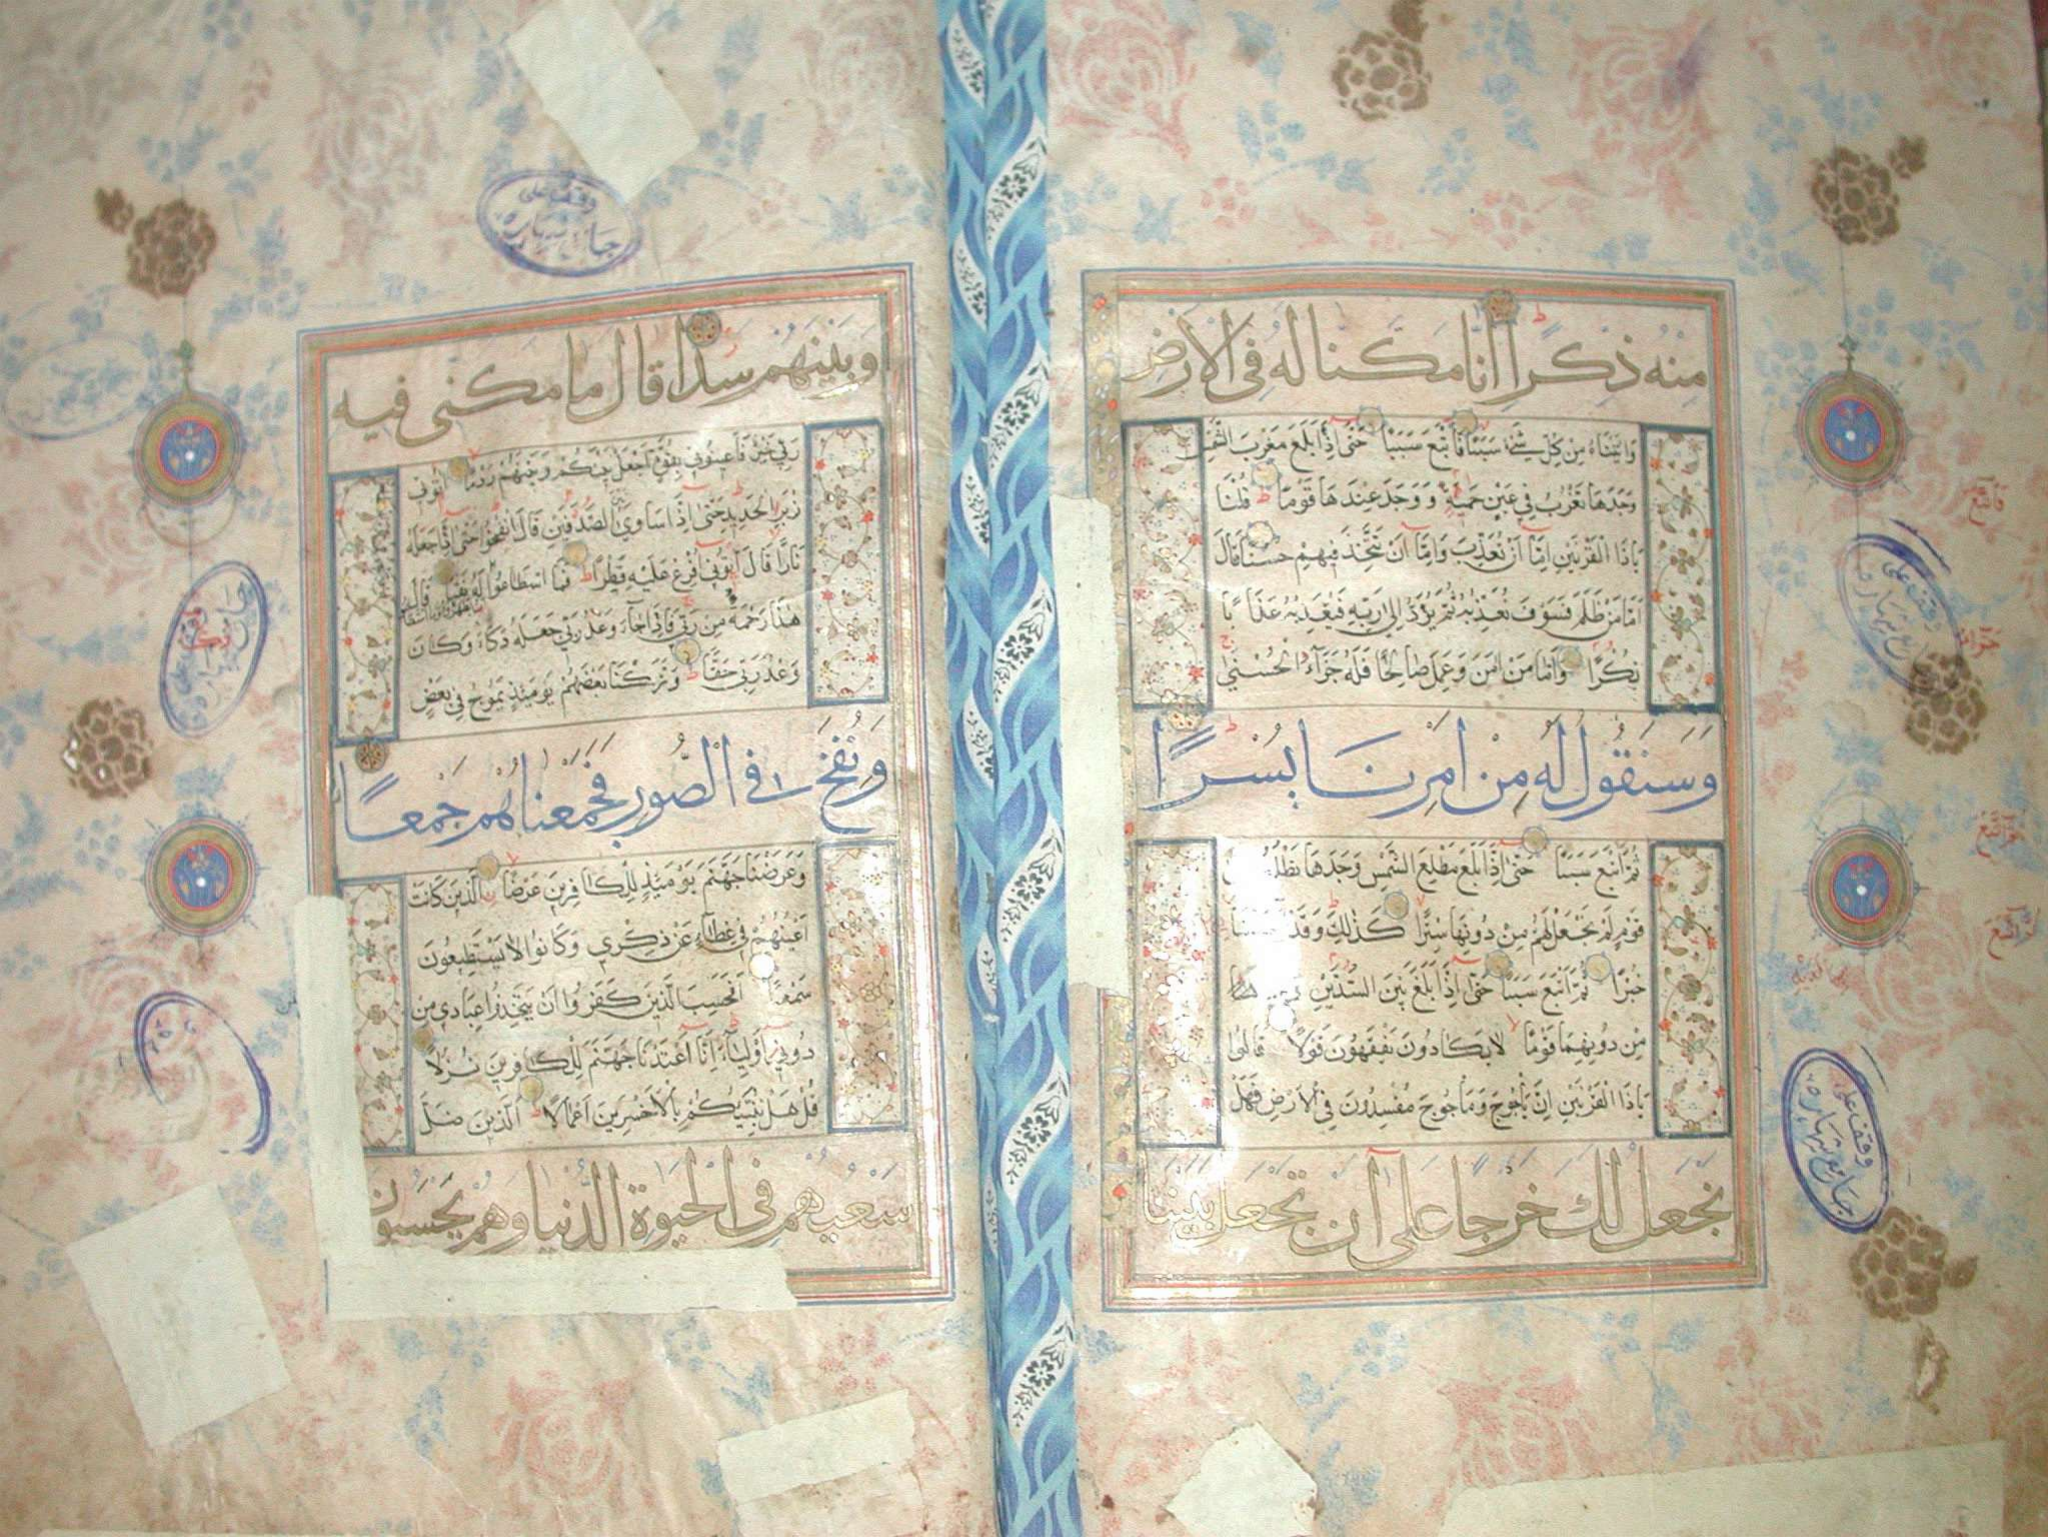 مِنْهُ ذِكْرًا اِنَّا مَكَّنَّا لَهُ فِى الْاَرْضِ
وَاٰتَيْنَاهُ مِنْ كُلِّ شَىْءٍ سَبَبًا فَاَتْبَعَ سَبَبًا حَتّٰى اِذَا بَلَغَ مَغْرِبَ الشَّمْسِ
وَجَدَهَا تَغْرُبُ فِى عَيْنٍ حَمِئَةٍ وَوَجَدَ عِنْدَهَا قَوْمًا قُلْنَا
يَاذَا الْقَرْنَيْنِ اِمَّا اَنْ تُعَذِّبَ وَاِمَّا اَنْ تَتَّخِذَ فِيهِمْ حُسْنًا قَالَ
اَمَّا مَنْ ظَلَمَ فَسَوْفَ نُعَذِّبُهُ ثُمَّ يُرَدُّ اِلٰى رَبِّهِ فَيُعَذِّبُهُ عَذَابًا
نُكْرًا وَاَمَّا مَنْ اٰمَنَ وَعَمِلَ صَالِحًا فَلَهُ جَزَاءً الْحُسْنٰى
وَسَنَقُولُ لَهُ مِنْ اَمْرِنَا يُسْرًا
ثُمَّ اَتْبَعَ سَبَبًا حَتّٰى اِذَا بَلَغَ مَطْلِعَ الشَّمْسِ وَجَدَهَا تَطْلُعُ
قَوْمٍ لَمْ نَجْعَلْ لَهُمْ مِنْ دُونِهَا سِتْرًا كَذٰلِكَ وَقَدْ
خُبْرًا ثُمَّ اَتْبَعَ سَبَبًا حَتّٰى اِذَا بَلَغَ بَيْنَ السَّدَّيْنِ
مِنْ دُونِهِمَا قَوْمًا لَا يَكَادُونَ يَفْقَهُونَ قَوْلًا قَالُوا
يَاذَا الْقَرْنَيْنِ اِنَّ يَأْجُوجَ وَمَأْجُوجَ مُفْسِدُونَ فِى الْاَرْضِ فَهَلْ
نَجْعَلُ لَكَ خَرْجًا عَلٰى اَنْ تَجْعَلَ بَيْنَنَا
وَبَيْنَهُمْ سَدًّا قَالَ مَا مَكَّنِّى فِيهِ
رَبِّى خَيْرٌ فَاَعِينُونِى بِقُوَّةٍ اَجْعَلْ بَيْنَكُمْ وَبَيْنَهُمْ رَدْمًا اٰتُونِى
زُبَرَ الْحَدِيدِ حَتّٰى اِذَا سَاوٰى بَيْنَ الصَّدَفَيْنِ قَالَ انْفُخُوا حَتّٰى اِذَا جَعَلَهُ
نَارًا قَالَ اٰتُونِى اُفْرِغْ عَلَيْهِ قِطْرًا فَمَا اسْطَاعُوا لَهُ نَقْبًا قَالَ
هٰذَا رَحْمَةٌ مِنْ رَبِّى فَاِذَا جَاءَ وَعْدُ رَبِّى جَعَلَهُ دَكَّاءَ وَكَانَ
وَعْدُ رَبِّى حَقًّا وَتَرَكْنَا بَعْضَهُمْ يَوْمَئِذٍ يَمُوجُ فِى بَعْضٍ
وَنُفِخَ فِى الصُّورِ فَجَمَعْنَاهُمْ جَمْعًا
وَعَرَضْنَا جَهَنَّمَ يَوْمَئِذٍ لِلْكَافِرِينَ عَرْضًا الَّذِينَ كَانَتْ
اَعْيُنُهُمْ فِى غِطَاءٍ عَنْ ذِكْرِى وَكَانُوا لَا يَسْتَطِيعُونَ
سَمْعًا اَفَحَسِبَ الَّذِينَ كَفَرُوا اَنْ يَتَّخِذُوا عِبَادِى مِنْ
دُونِى اَوْلِيَاءَ اِنَّا اَعْتَدْنَا جَهَنَّمَ لِلْكَافِرِينَ نُزُلًا
قُلْ هَلْ نُنَبِّئُكُمْ بِالْاَخْسَرِينَ اَعْمَالًا الَّذِينَ ضَلَّ
سَعْيُهُمْ فِى الْحَيٰوةِ الدُّنْيَا وَهُمْ يَحْسَبُونَ